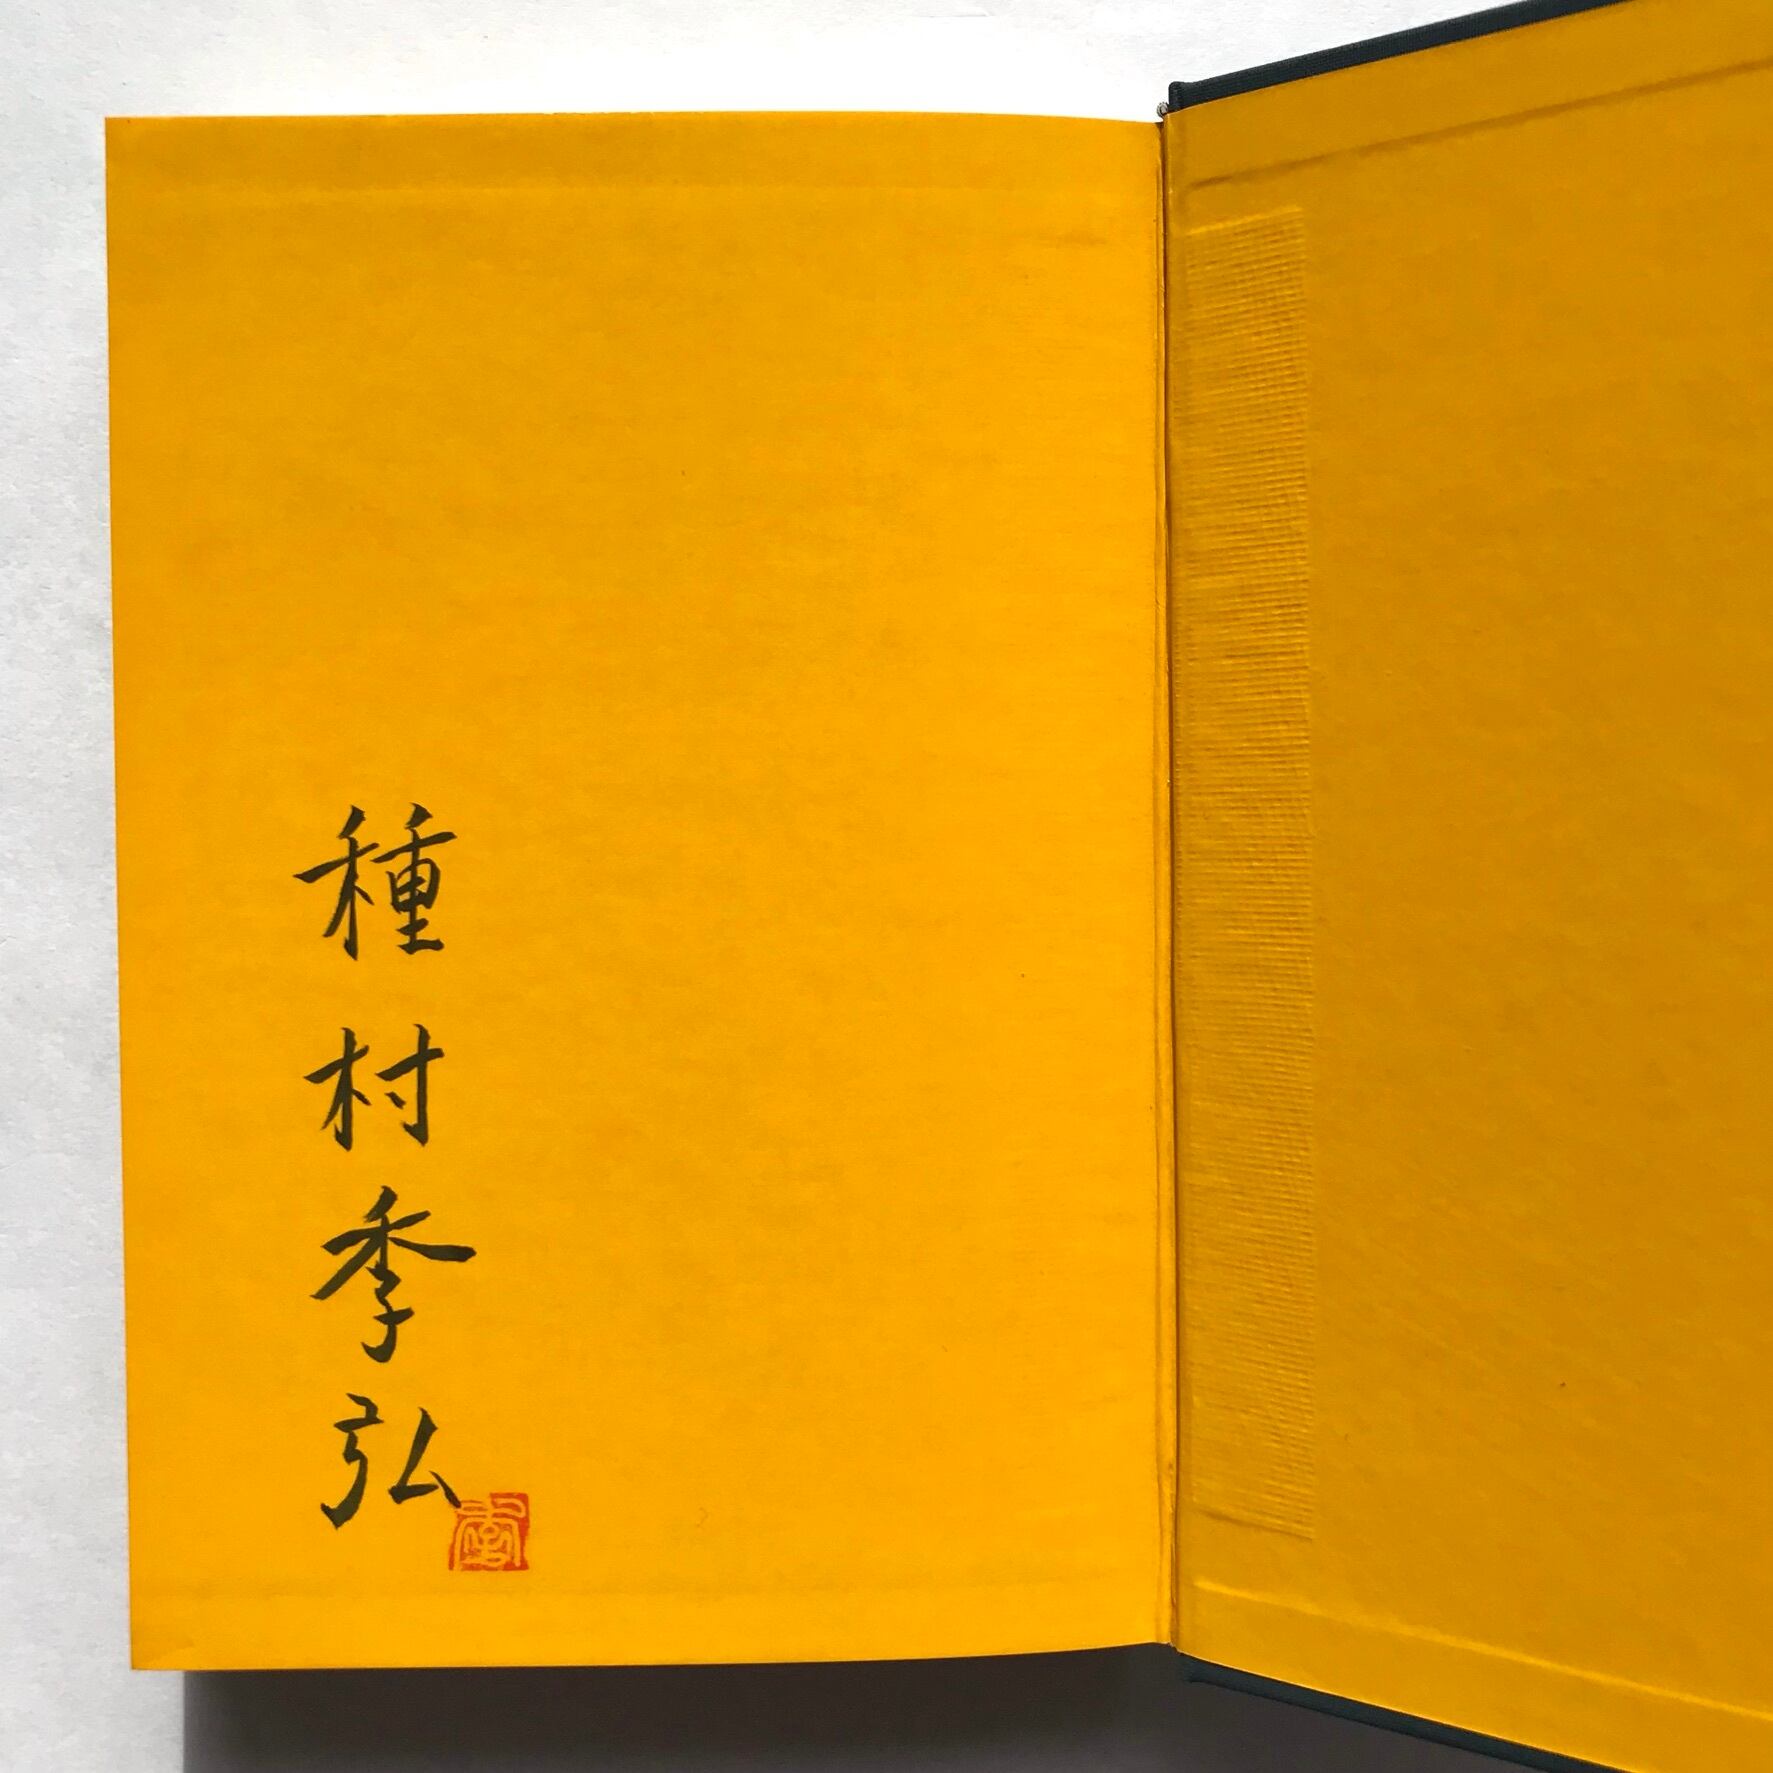 種村季弘
季